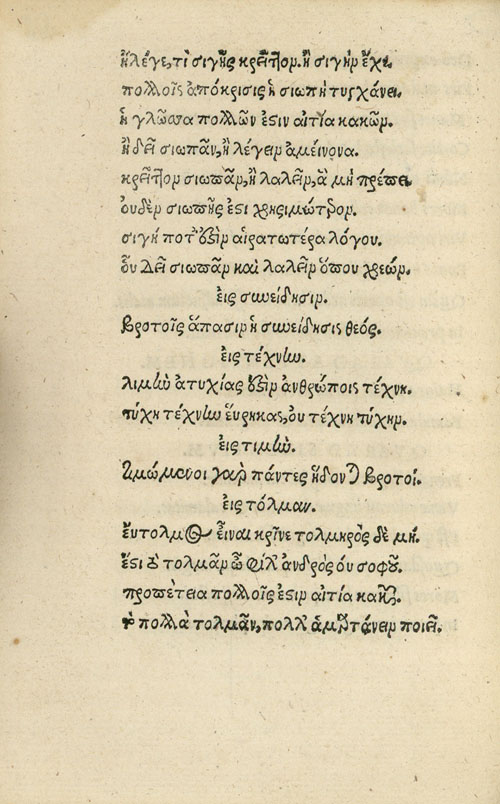 ἢ λέγε, τὶ σιγῆς κρεῖττον. ἢ σιγὴν ἔχε.
πολλοῖς ἀπόκρισις ἡ σιωπὴ τυγχάνει.
ἡ γλῶσσα πολλῶν ἐστιν αἰτία κακῶν.
ἢ δεῖ σιωπᾶν, ἢ λέγειν ἀμείνονα.
κρεῖττον σιωπᾶν, ἢ λαλεῖν, ἃ μὴ πρέπει.
ουδὲν σιωπῆς ἐστι χρησιμώτερον.
σιγή ποτ' ἐστὶν αἱρατωτέρα λόγου.
οὗ δεῖ σιωπᾶν καὶ λαλεῖν ὅπου χρεών.
εἰς συνείδησιν.
βροτοῖς ἅπασιν ἡ συνείδησις θεός.
εἰς τέχνην.
λιμὴν ἀτυχίας ἐστὶν ἀνθρώποις τέχνη.
τύχη τέχνην εὕρηκας, ου τέχνη τύχην.
εἰς τιμὴν.
τιμώμενοι γὰρ πάντες ἥδονται βροτοί.
εἰς τόλμαν.
ἔυτολμος εἶναι κρῖνε τολμηρὸς δὲ μή.
ἔστι τὸ τολμᾶν ὦ φίλ' ἀνδρὸς ου σοφοῦ.
προπέτεια πολλοῖς ἐστιν αἰτία κακῶν.
τὸ πολλὰ τολμᾶν, πολλ' ἁμαρτάνειν ποιεῖ.